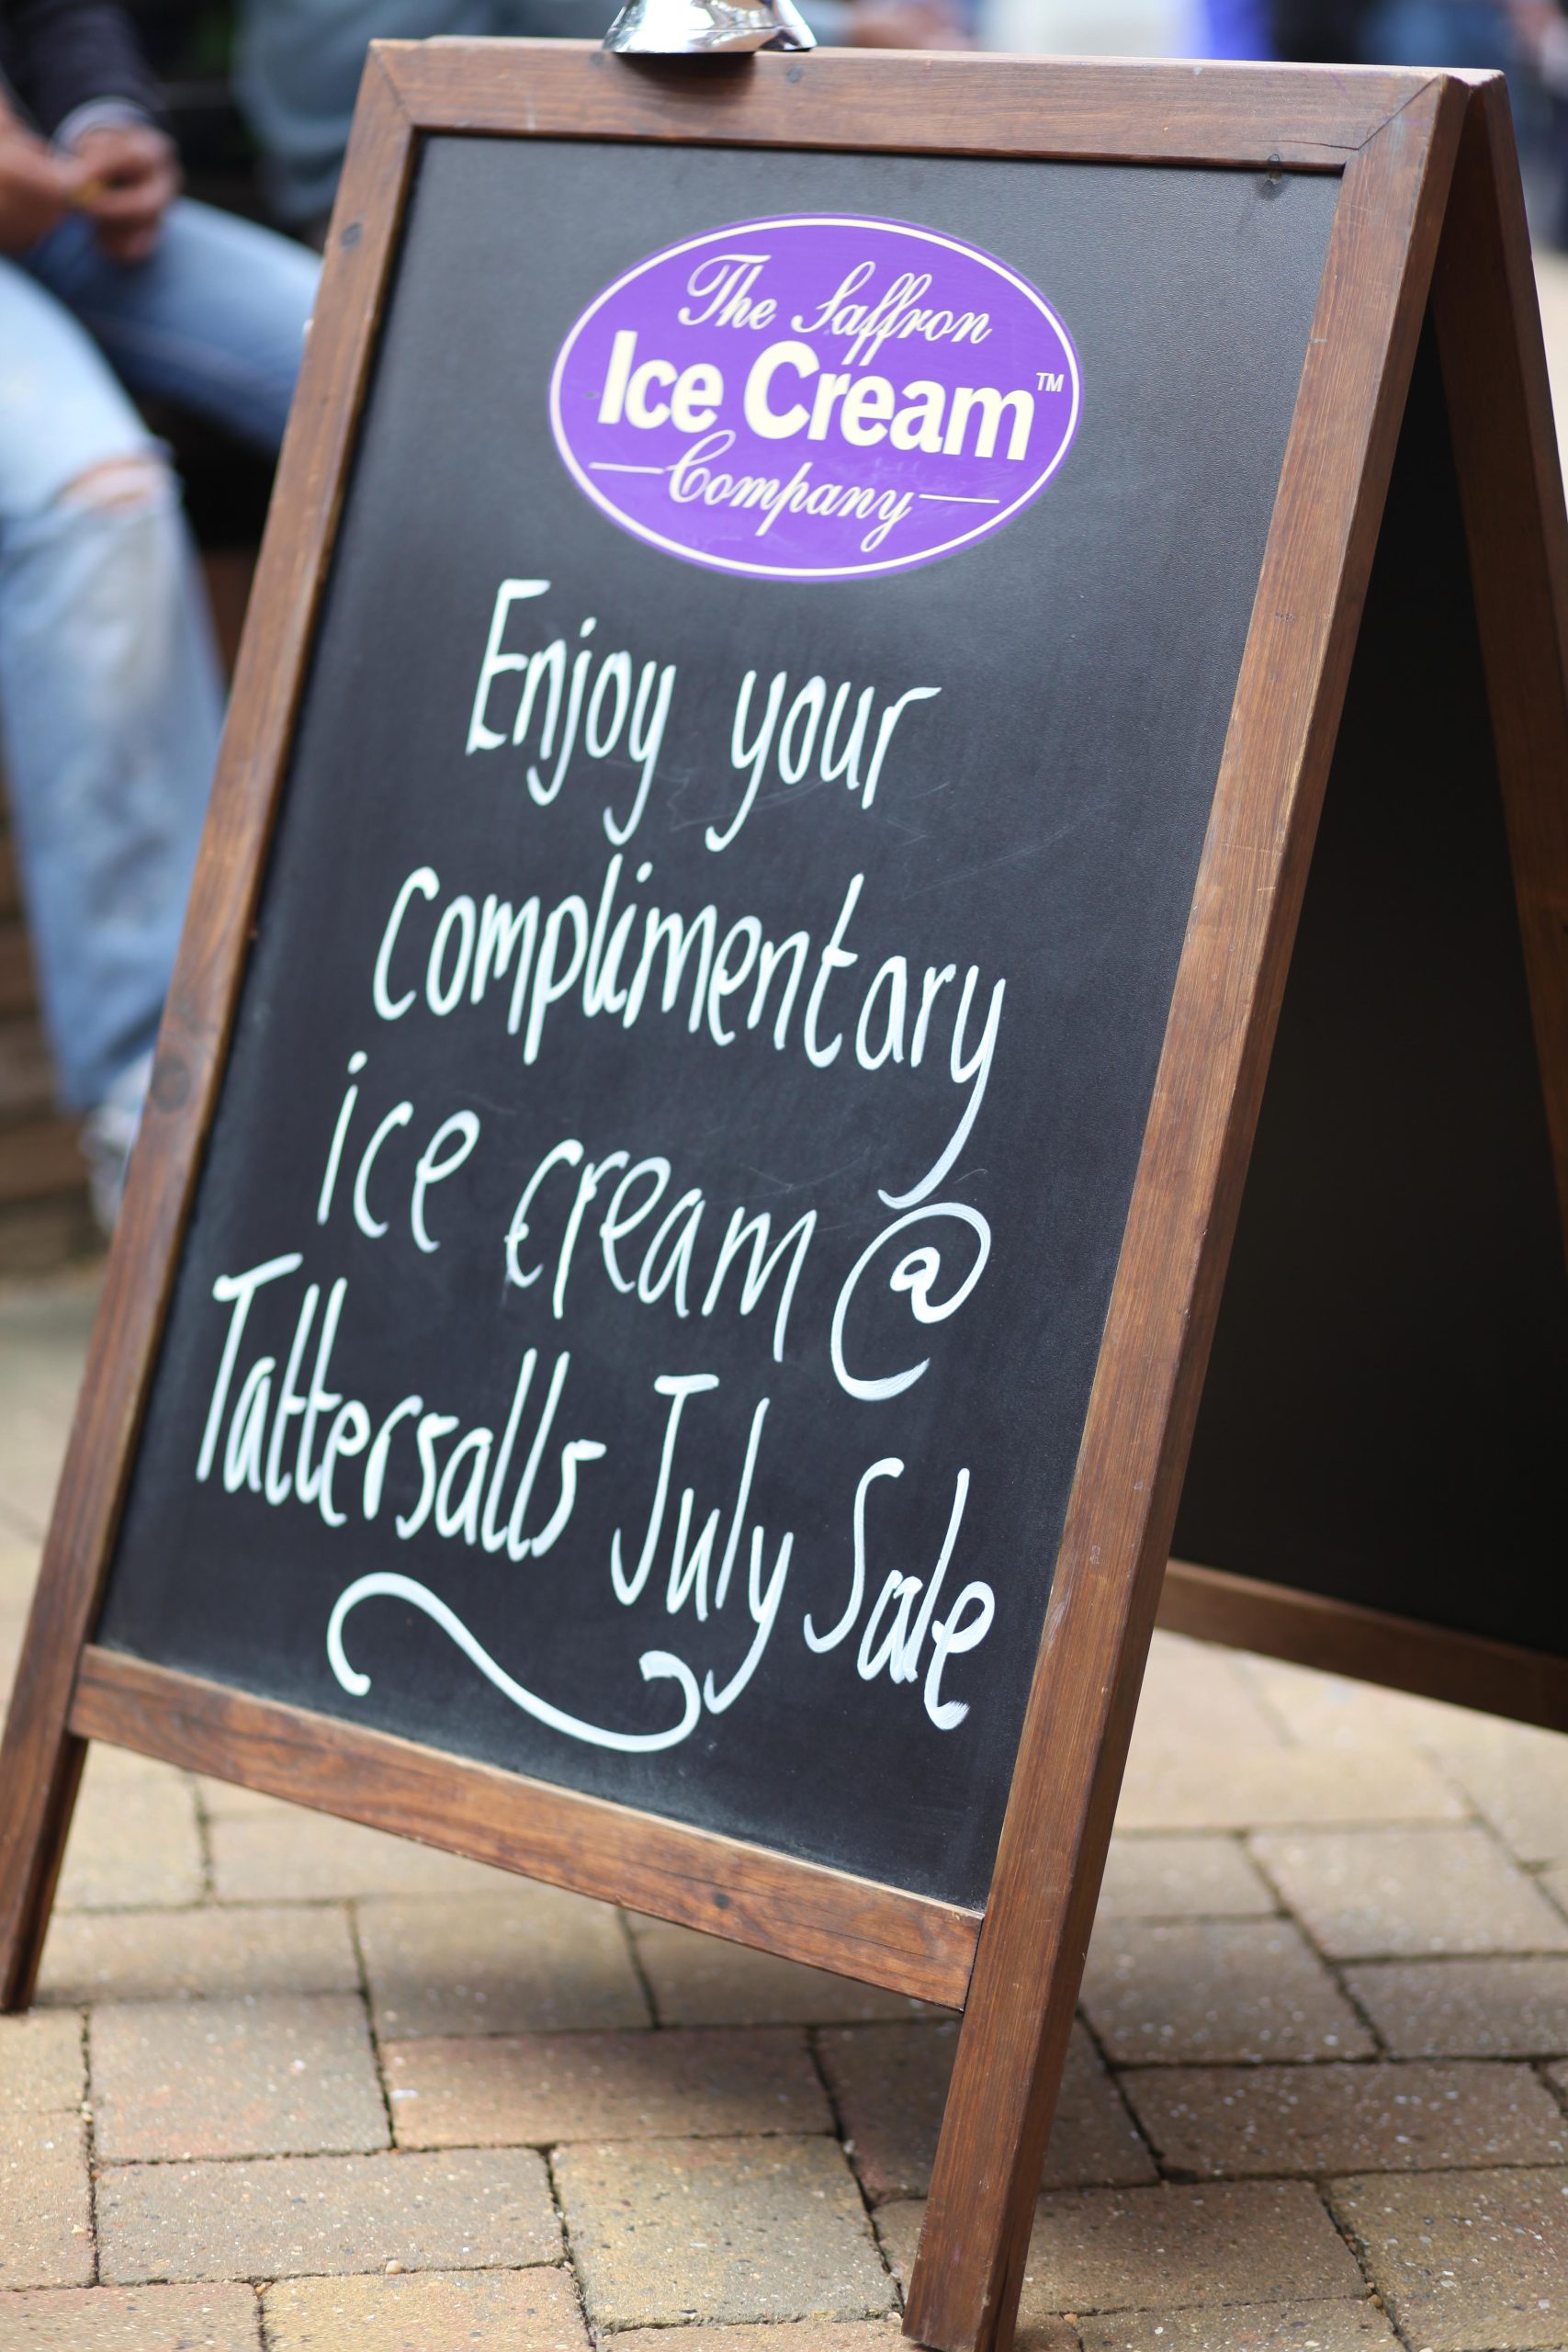 The Saffron
Ice Cream™
Company
Enjoy your
Complimentary
ice cream @
Tattersalls July Sale